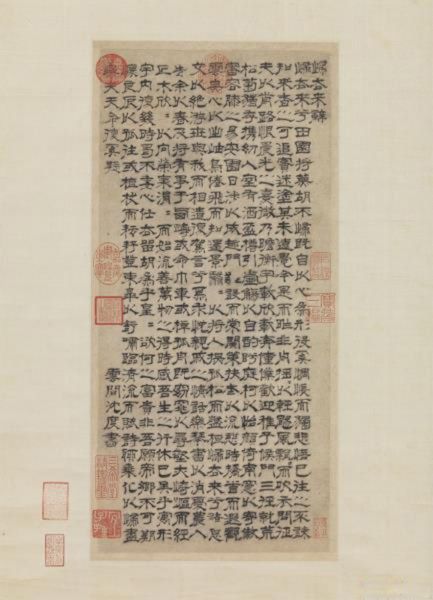 歸去來辭
歸去來兮田園將蕪胡不歸既自以心為形役奚惆悵而獨悲悟已往之不諫
知來者之可追實迷塗其未遠覺今是而昨非舟搖=以輕颺風飄=而吹衣問征
夫以前路恨晨光之熹微乃瞻衡宇載欣載奔僮僕歡迎稚子候門三徑就荒
松菊猶存攜幼入室有酒盈樽引壺觴以自酌眄庭柯以怡顏倚南窗以寄傲
審容膝之易安園日涉以成趣門雖設而常關策扶老以流憩時矯首而遐觀
雲無心以出岫鳥倦飛而知還景翳=以將入撫孤松而盤桓歸去來兮請息
交以絕游世與我而相遺復駕言兮焉求悅親戚之情話樂琴書以消憂農人
告余以春及將有事乎西疇或命巾車或棹孤舟既窈窕以尋壑亦崎嶇而經
丘木欣=以向榮泉涓=而始流善萬物之得時感吾生之行休已矣乎寓形
宇內復幾時曷不委心任去留胡為乎遑=欲何之富貴非吾願帝鄉不可期
懷良辰以孤往或植杖而耘耔登東皋以舒嘯臨清流而賦詩聊乘化以歸盡
樂夫天命復奚疑
雲間沈度書